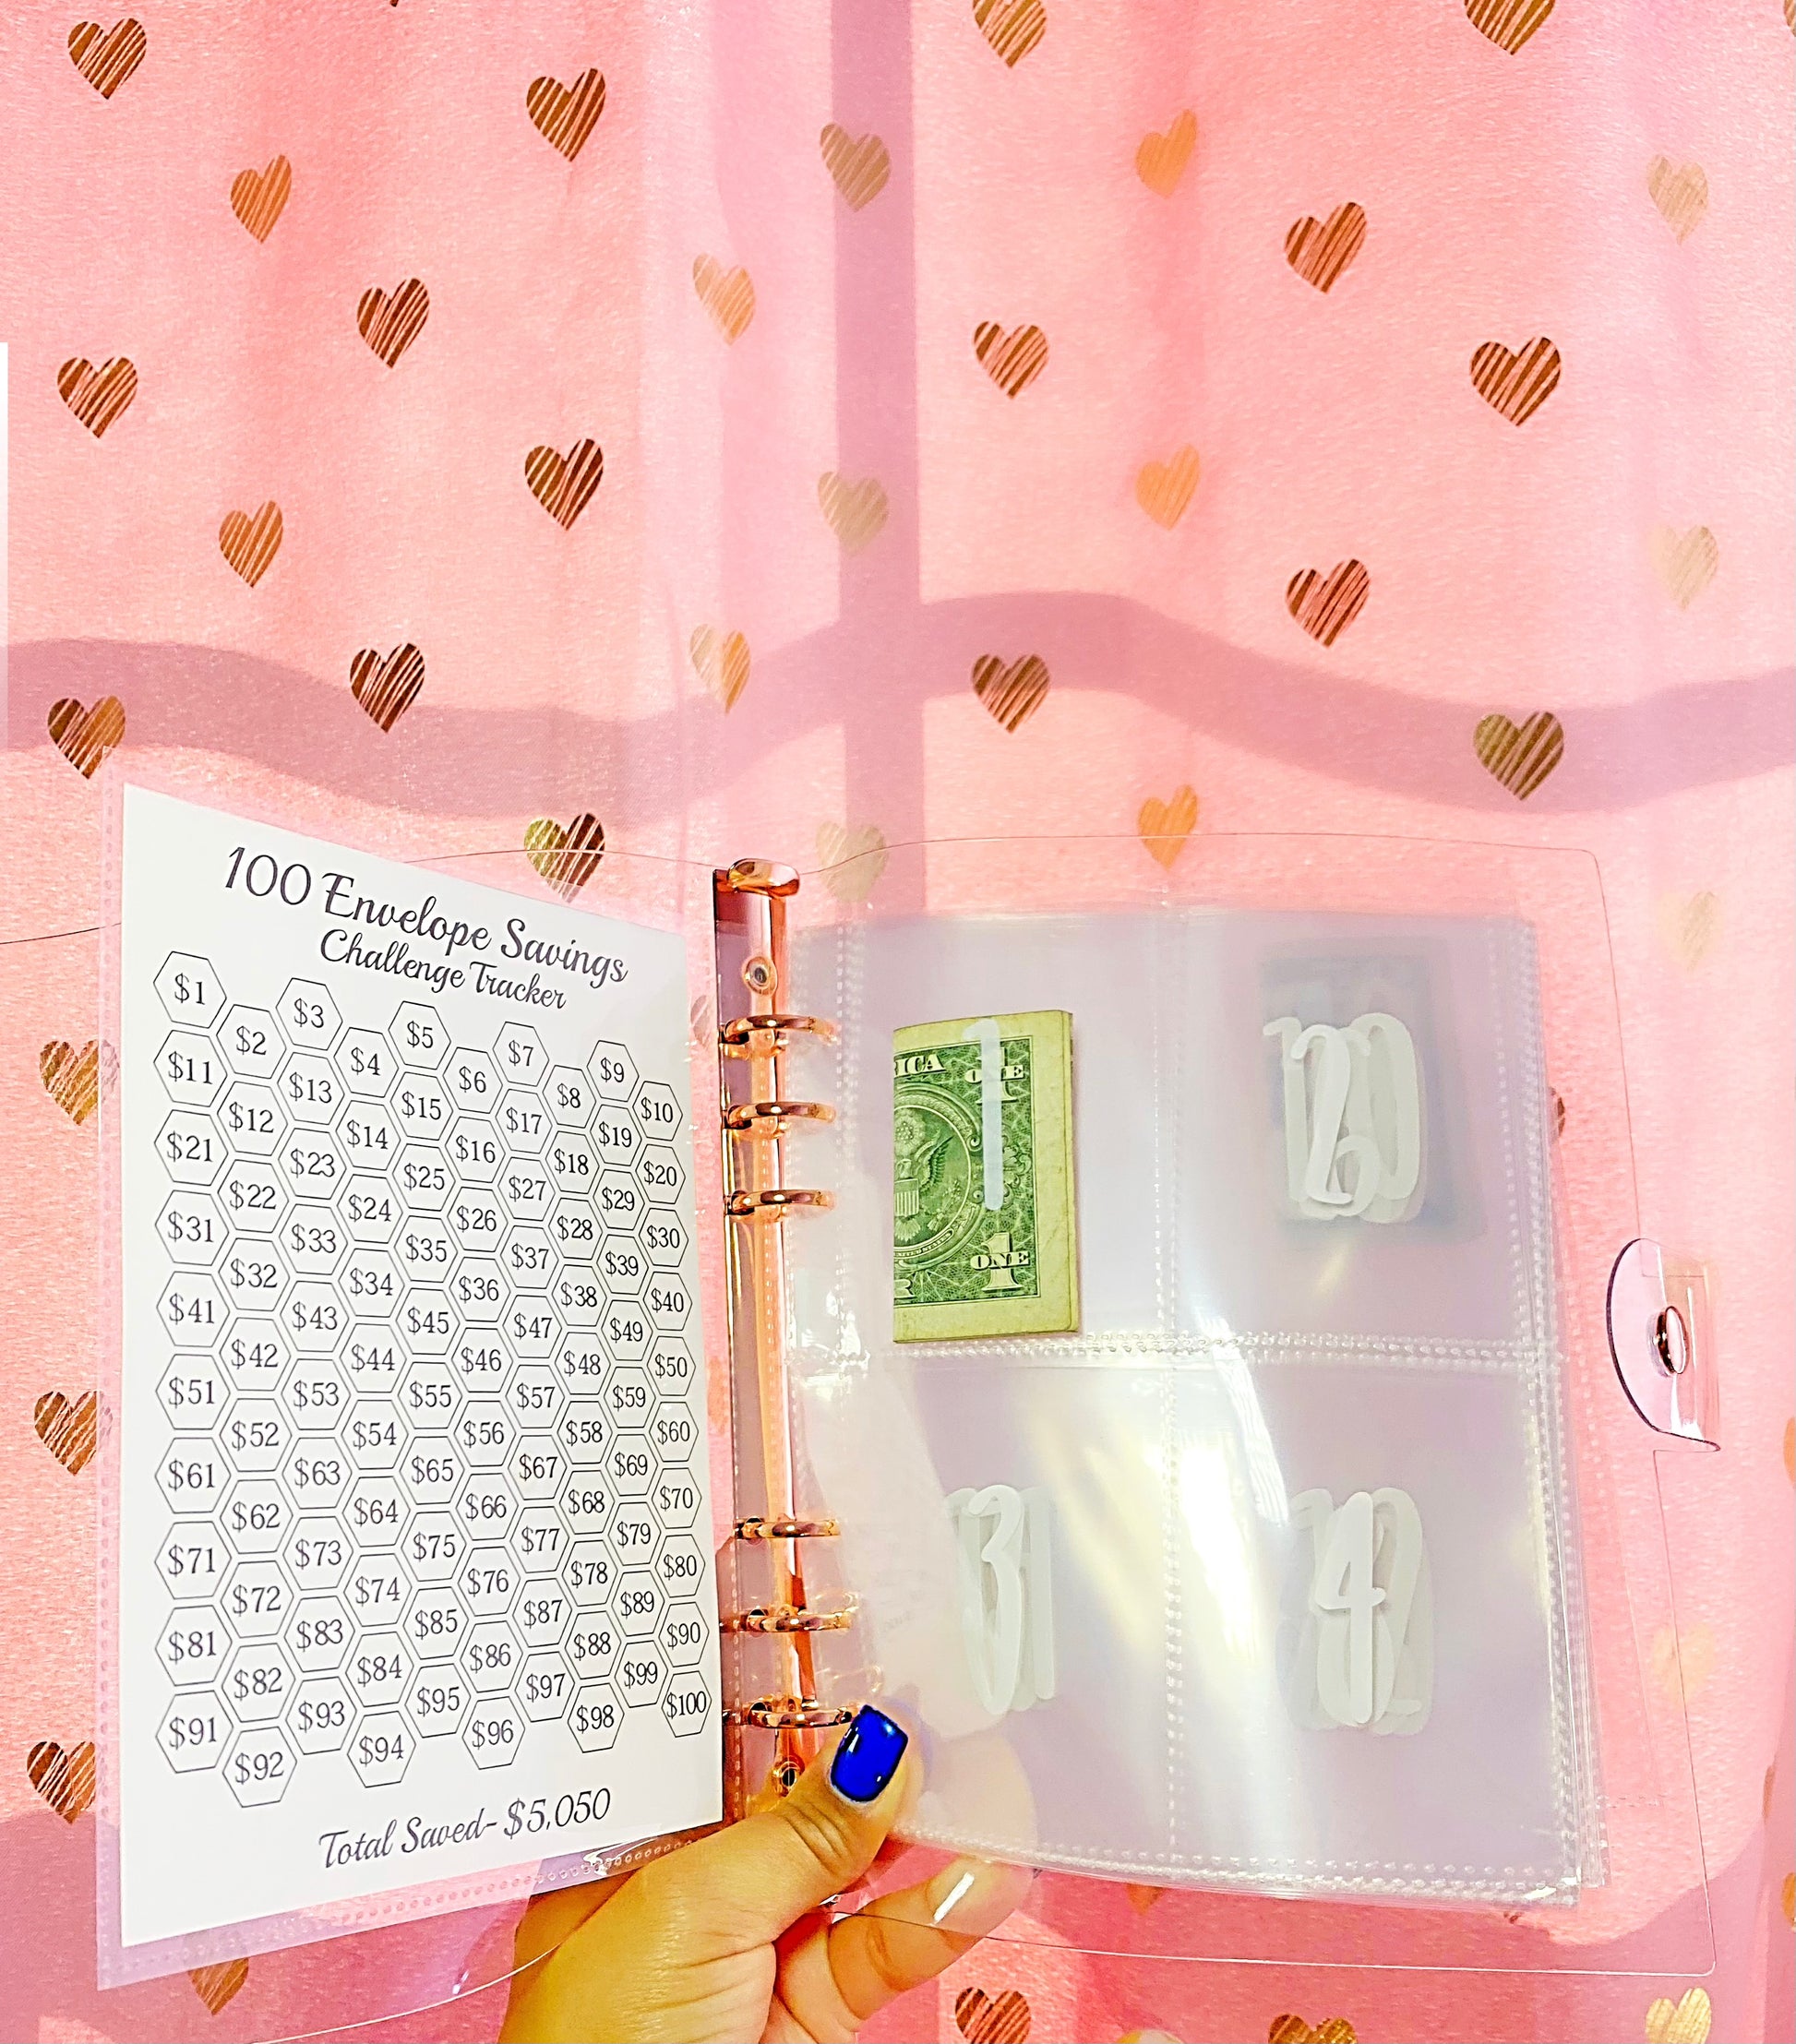 100 Envelope Savings
Challenge Tracker
$1 $2 $3 $4 $5 $6 $7 $8 $9 $10
$11 $12 $13 $14 $15 $16 $17 $18 $19 $20
$21 $22 $23 $24 $25 $26 $27 $28 $29 $30
$31 $32 $33 $34 $35 $36 $37 $38 $39 $40
$41 $42 $43 $44 $45 $46 $47 $48 $49 $50
$51 $52 $53 $54 $55 $56 $57 $58 $59 $60
$61 $62 $63 $64 $65 $66 $67 $68 $69 $70
$71 $72 $73 $74 $75 $76 $77 $78 $79 $80
$81 $82 $83 $84 $85 $86 $87 $88 $89 $90
$91 $92 $93 $94 $95 $96 $97 $98 $99 $100
Total Saved- $5,050
1
ICA
ONE
1
ONE
R
2
3
4